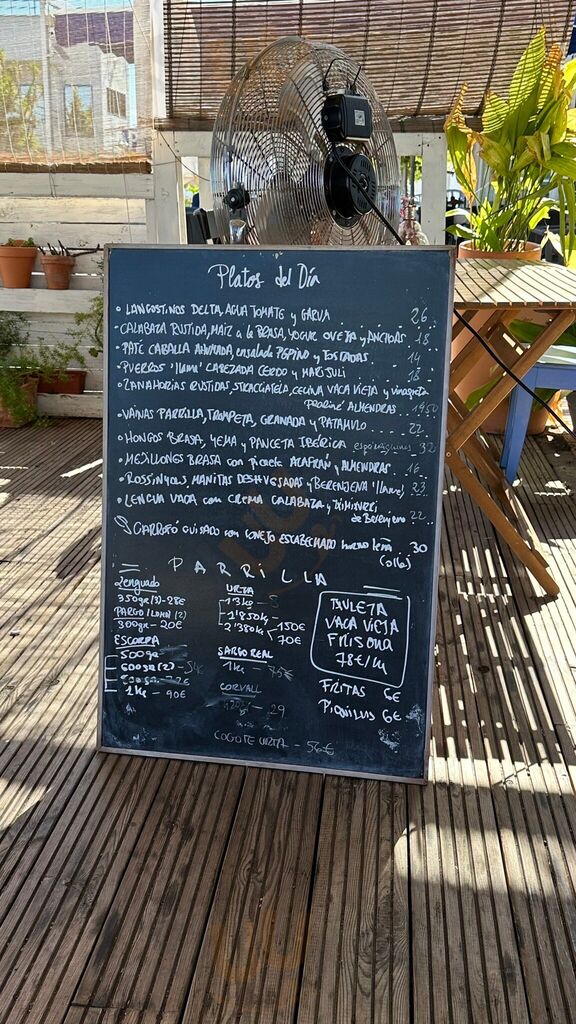 Platos del Día
• LANGOSTINOS DELTA, AGUA TOMATE y GARUM 26
CALABAZA RUSTIDA, MAIZ a la BRASA, YOGUR OVEJA y ANCHOAS 18
• PATÉ CABALLA AHUMADA, ensalada PEPINO y TOSTADAS 14
• PUERROS 'llama' CABEZADA CERDO y
• ZANAHORIAS RUSTIDAS, STRACCIATELA, CECINA VACA VIEJA y vinagreta
praliné ALMENDRAS 19'50
• VAINAS PARRILLA, TROMPETA, GRANADA y 22
• HONGOS BRASA, YEMA y PANCETA IBÉRICA 32
• MEJILLONES BRASA con AZAFRÁN y ALMENDRAS 16
• ROSSINYOLS, MANITAS DESHUESADAS y BERENJENA 'llama' 23
• LENGUA VACA con CREMA CALABAZA y
de Berenjena 22
GARROFÓ GUISADO con CONEJO ESCABECHADO horno leña 30
PARRILLA
Lenguado
350gr (3) - 28€
PARGO / LOMO (2)
300gr - 20€
ESCORPA
500gr
600gr (2) - 54€
1kg - 90€
URTA
1'3kg
1'850kg
2'380kg < 150€
70€
SARGO REAL
1kg - 75€
CORVALL
- 29
COGOTE URTA - 56€
TXULETA
VACA VIEJA
FRISONA
78€/kg
FRITAS 6€
PIQUILLOS 6€